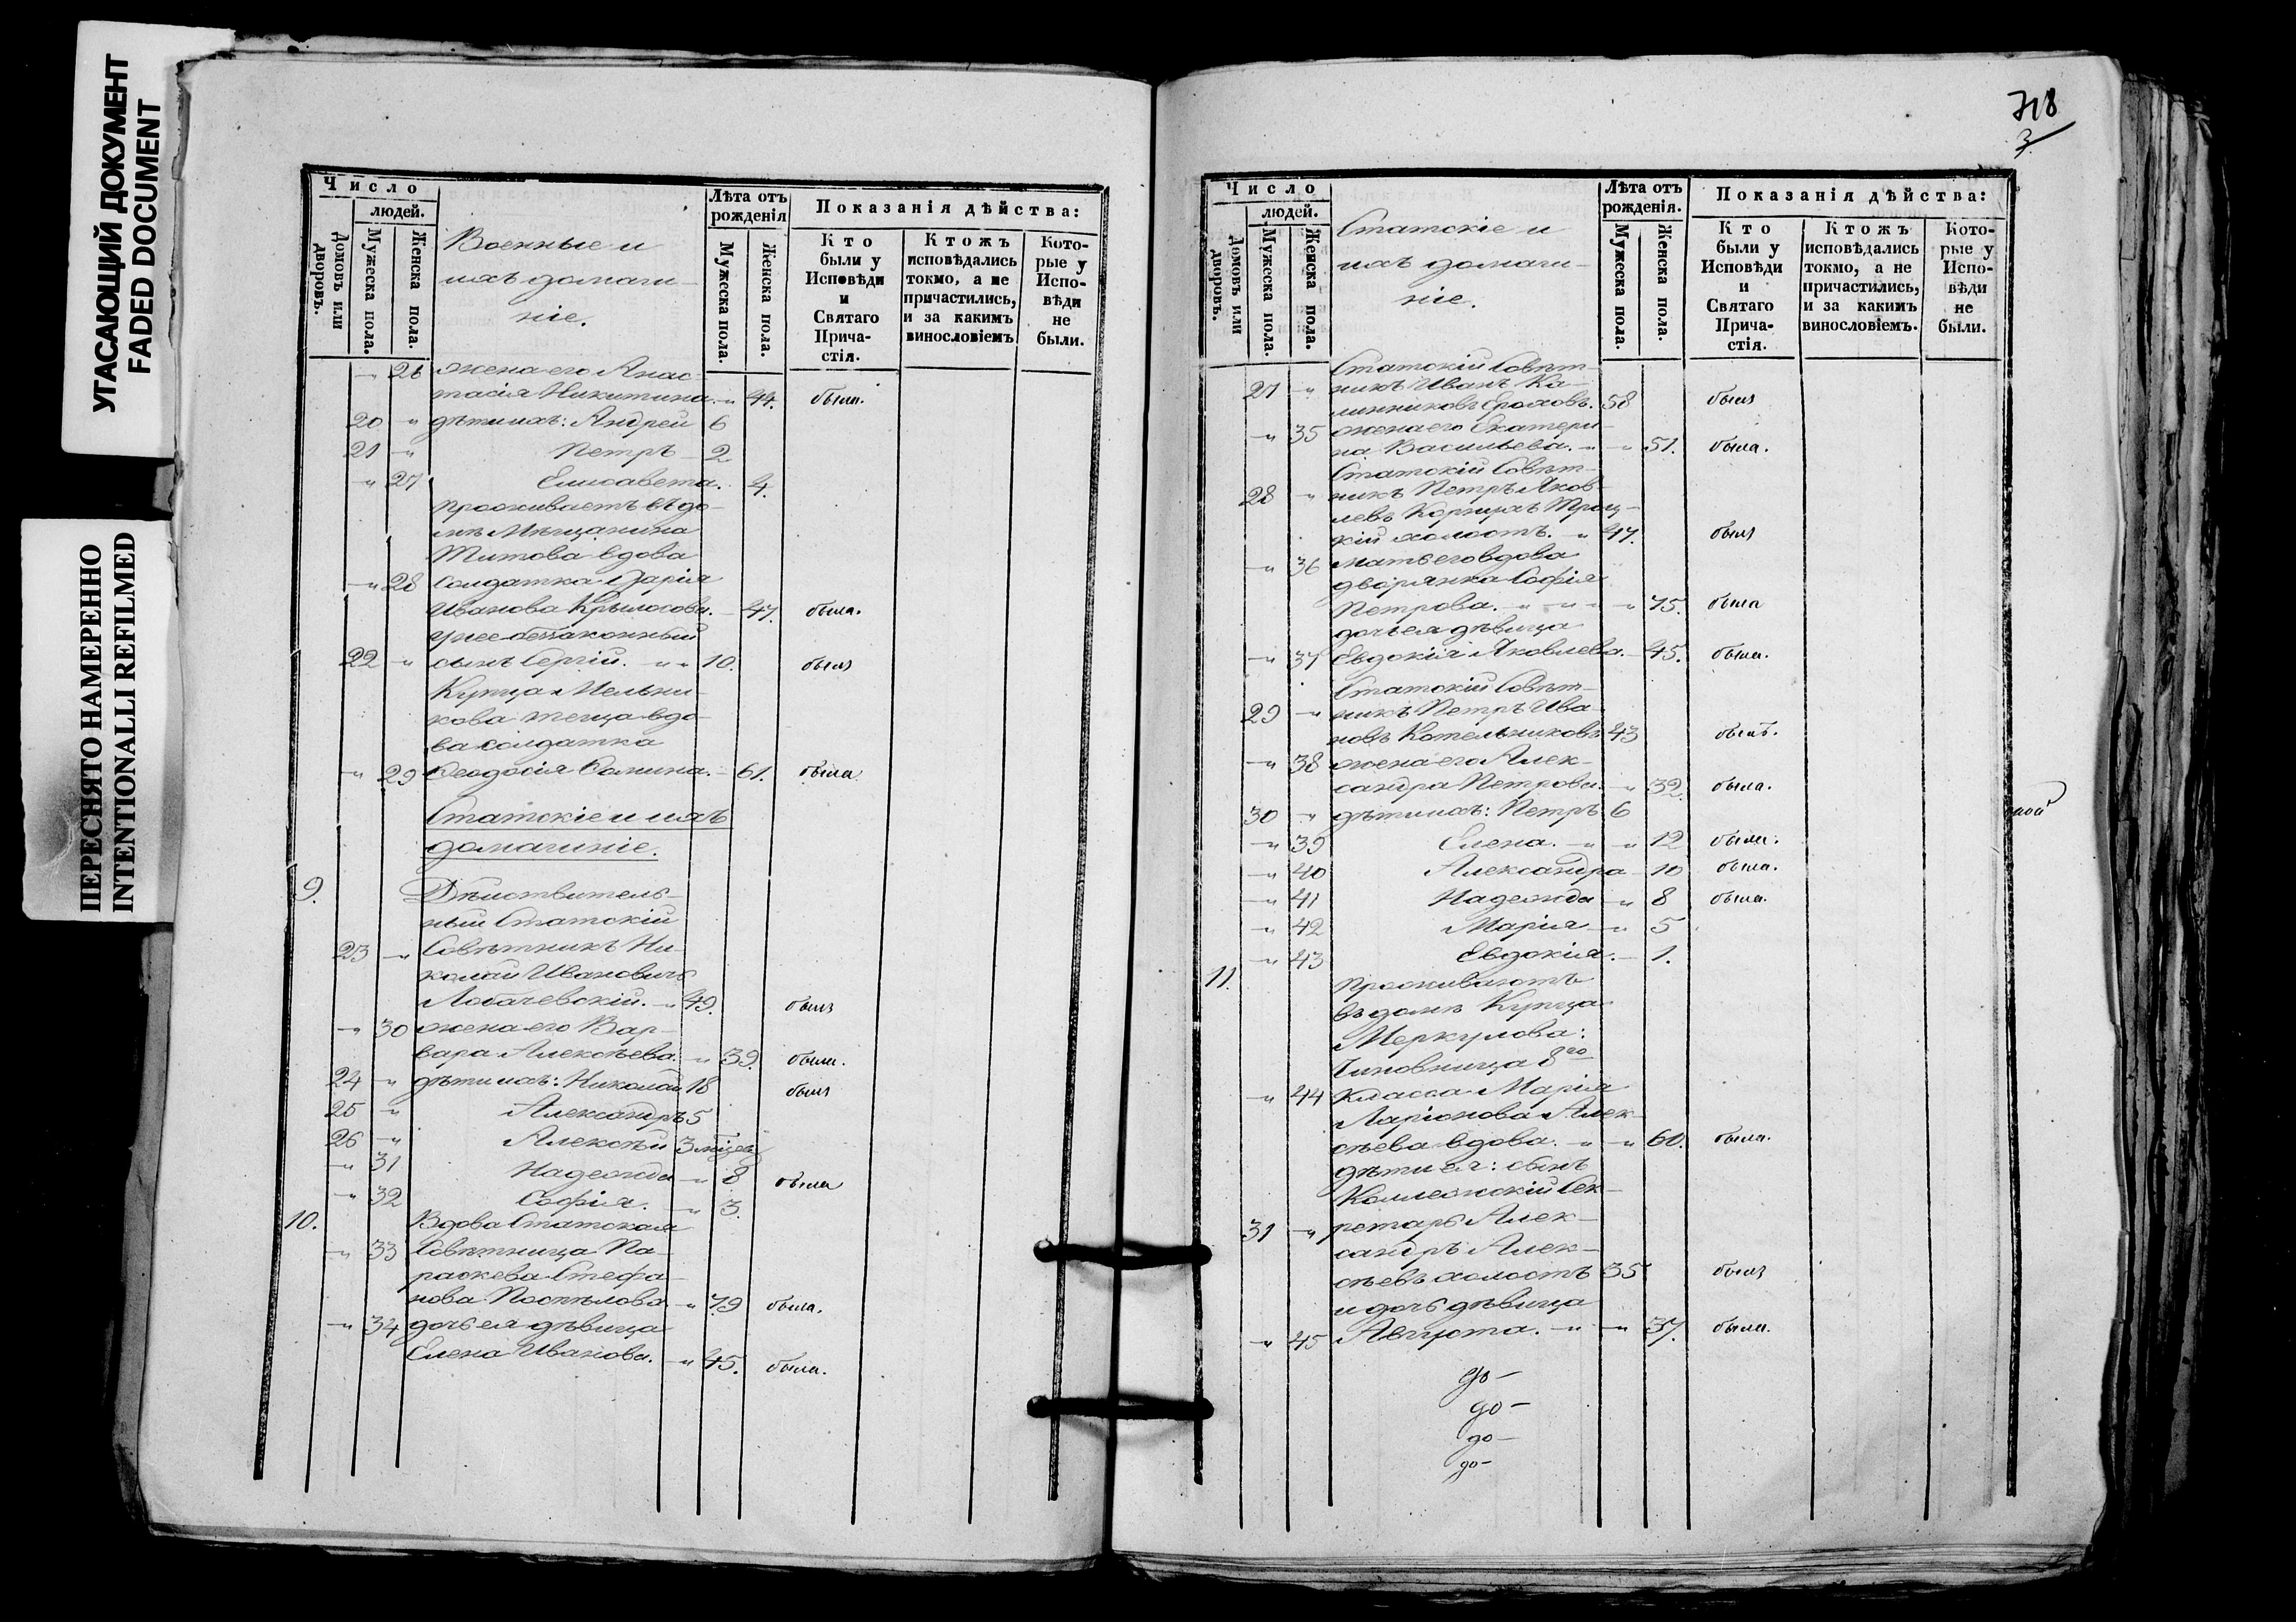 УГАСАЮЩИЙ ДОКУМЕНТ
FADED DOCUMENT
ПЕРЕСНЯТО НАМЕРЕННО
INTENTIONALLI REFILMED
Число
людей.
Домовъ или дворовъ.
Мужеска пола.
Женска пола.
Военные и
ихъ домаш-
ніе.
Лѣта отъ
рожденія
Мужеска пола.
Женска пола.
Показанія дѣйства:
Кто
были у
Исповѣди
и
Святаго
Прича-
стія.
Ктожъ
исповѣдались
токмо, а не
причастились,
и за какимъ
винословіемъ
Кото-
рые у
Испо-
вѣди
не
были.
26 жена его Анас-
тасія Никитина. 44. была.
20 дѣти ихъ: Андрей 6
21 Петръ 2
27 Елисавета. 4.
проживаетъ въ до-
мѣ Мѣщанина
Титова вдова
28 солдатка Дарія
Иванова Крылосова. 47. была.
у нее беззаконный
22 сынъ Сергій. 10. былъ
Купца Мельни-
кова теща вдо-
ва солдатка
29 Ѳеодосія Ѳомина. 61. была
Статскіе и ихъ
домашніе.
9. Дѣйствитель-
ный Статскій
23 Совѣтникъ Ни-
колай Ивановичъ
Лобачевскій. 49. былъ
30 жена его Вар-
вара Алексѣева. 39. была.
24 дѣти ихъ: Николай 18 былъ
25 Александръ 5
26 Алексѣй 3 мѣсяц
31 Надежда 8 была
32 Софія. 3.
10. Вдова Статская
33 Совѣтница Па-
раскева Стефа-
нова Поспѣлова 79 была.
34 дочь ея дѣвица
Елена Иванова. 45. была.
318
3
Число
людей.
Домовъ или дворовъ.
Мужеска пола.
Женска пола.
Статскіе и
ихъ домаш-
ніе.
Лѣта отъ
рожденія.
Мужеска пола.
Женска пола.
Показанія дѣйства:
Кто
были у
Исповѣди
и
Святаго
Прича-
стія.
Ктожъ
исповѣдались
токмо, а не
причастились,
и за какимъ
винословіемъ.
Кото-
рые у
Испо-
вѣди
не
были.
Статскій Совѣт-
27 никъ Иванъ Ка-
линниковъ Ераховъ. 58 былъ
35 жена его Екатери-
на Васильева. 51. была.
Статскій Совѣт-
28 никъ Петръ Яков-
левъ Корнухъ Троц-
кій холостъ. 47. былъ
36 мать его вдова
дворянка Софія
Петрова. 75. была
дочь ея дѣвица
37 Евдокія Яковлева. 45. была.
Статскій Совѣт-
29 никъ Петръ Ива-
новъ Котельниковъ 43 былъ.
38 жена его Алек-
сандра Петрова. 32. была.
30 дѣти ихъ: Петръ 6
39 Елена. 12 была.
40 Александра 10 была.
41 Надежда 8 была.
42 Марія 5
43 Евдокія. 1.
11. проживаютъ
въ домѣ Купца
Меркулова:
Чиновница 8го
44 класса Марія
Ларіонова Алек-
сѣева вдова. 60. была.
дѣти ея: сынъ
Коллежскій Сек-
31 ретарь Алек-
сандръ Алек-
сѣевъ холостъ 35 былъ
и дочь дѣвица
45 Августа. 37. была.
до-
до-
до-
до-